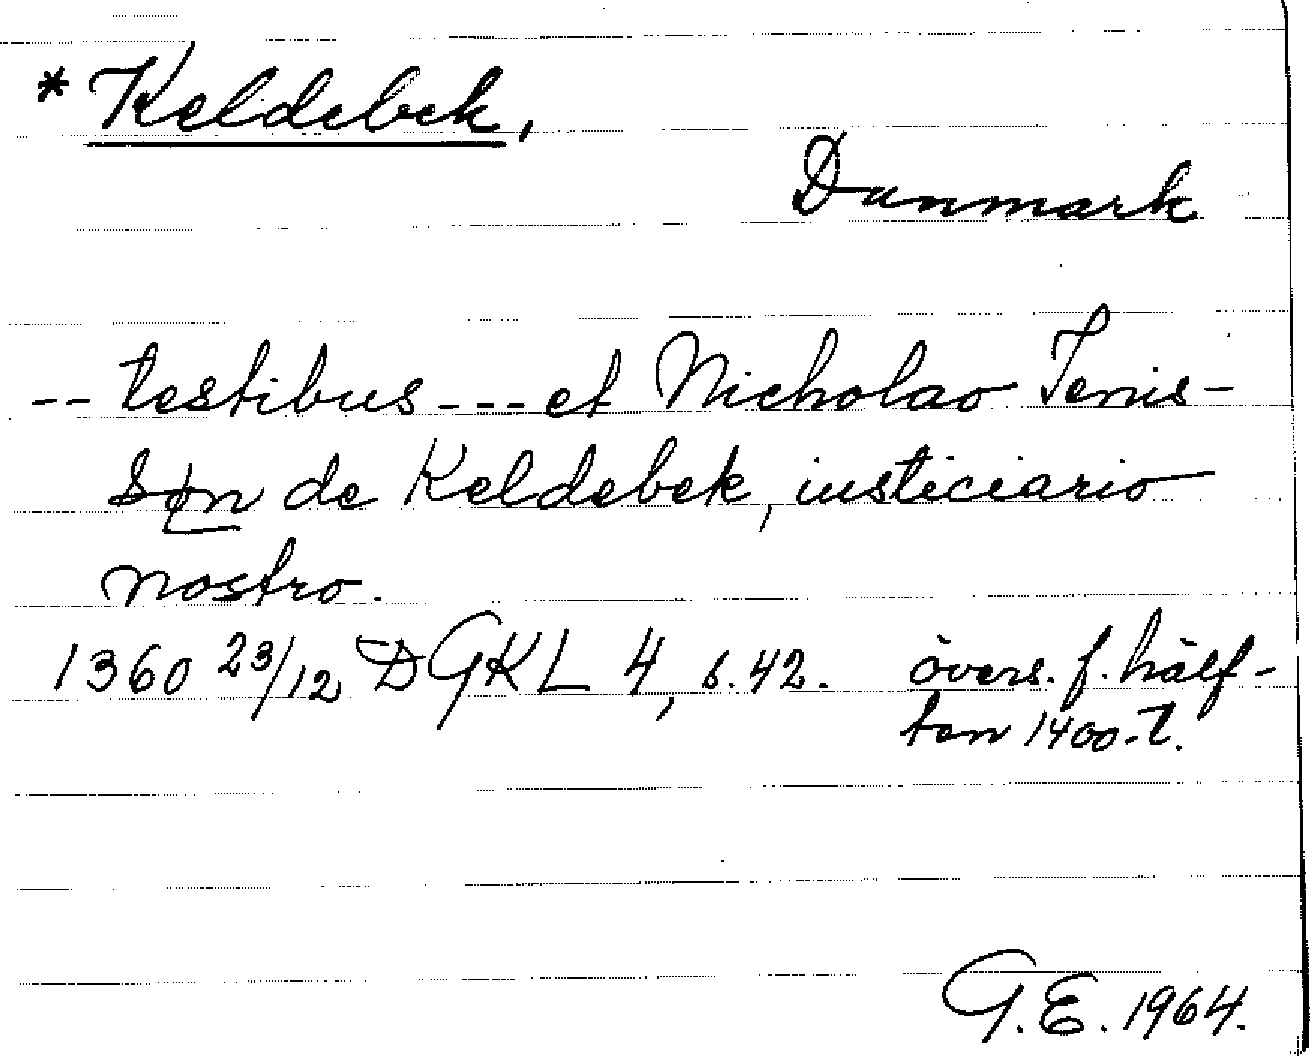 * Keldebek,
Danmark
-- testibus --- et Nicholao Jenis-
søn de Keldebek, iusticiario
nostro.
1360 23/12 DGKL 4, s. 42. övers. f. hälf-
ten 1400-t.
G.E. 1964.